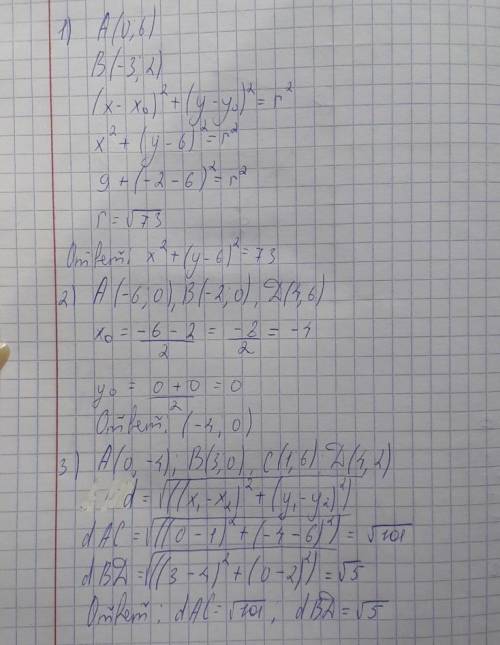 1) A(0,6)
B(-3,2)
(x-x₀)²+(y-y₀)²=r²
x²+(y-6)²=r²
9+(-2-6)²=r²
r=√73
Ответ: x²+(y-6)²=73
2) A(-6;0), B(-2;0), D(4,6)
x₀ = (-6-2)/2 = -8/2 = -4
y₀ = (0+0)/2 = 0
Ответ: (-4,0)
3) A(0,-4); B(3,0), C(1,6) D(4,2)
d=√((x₁-x₂)²+(y₁-y₂)²)
dAC=√((0-1)²+(-4-6)²)=√101
dBD=√((3-4)²+(0-2)²)=√5
Ответ: dAC=√101; dBD=√5